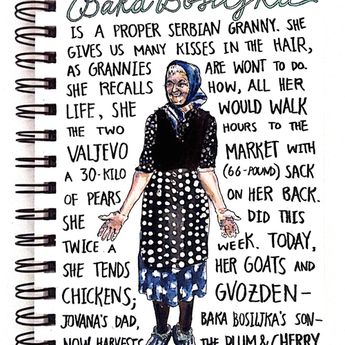 Baka Bosiljka
IS A PROPER SERBIAN GRANNY. SHE
GIVES US MANY KISSES IN THE HAIR,
AS GRANNIES ARE WONT TO DO.
SHE RECALLS HOW, ALL HER
LIFE, SHE WOULD WALK
THE TWO HOURS TO THE
VALJEVO MARKET WITH
A 30-KILO (66-POUND) SACK
OF PEARS ON HER BACK.
SHE DID THIS
TWICE A WEEK. TODAY,
SHE TENDS HER GOATS AND
CHICKENS; GVOZDEN–
JOVANA'S DAD, BAKA BOSILJKA'S SON–
NOW HARVESTS THE PLUM & CHERRY